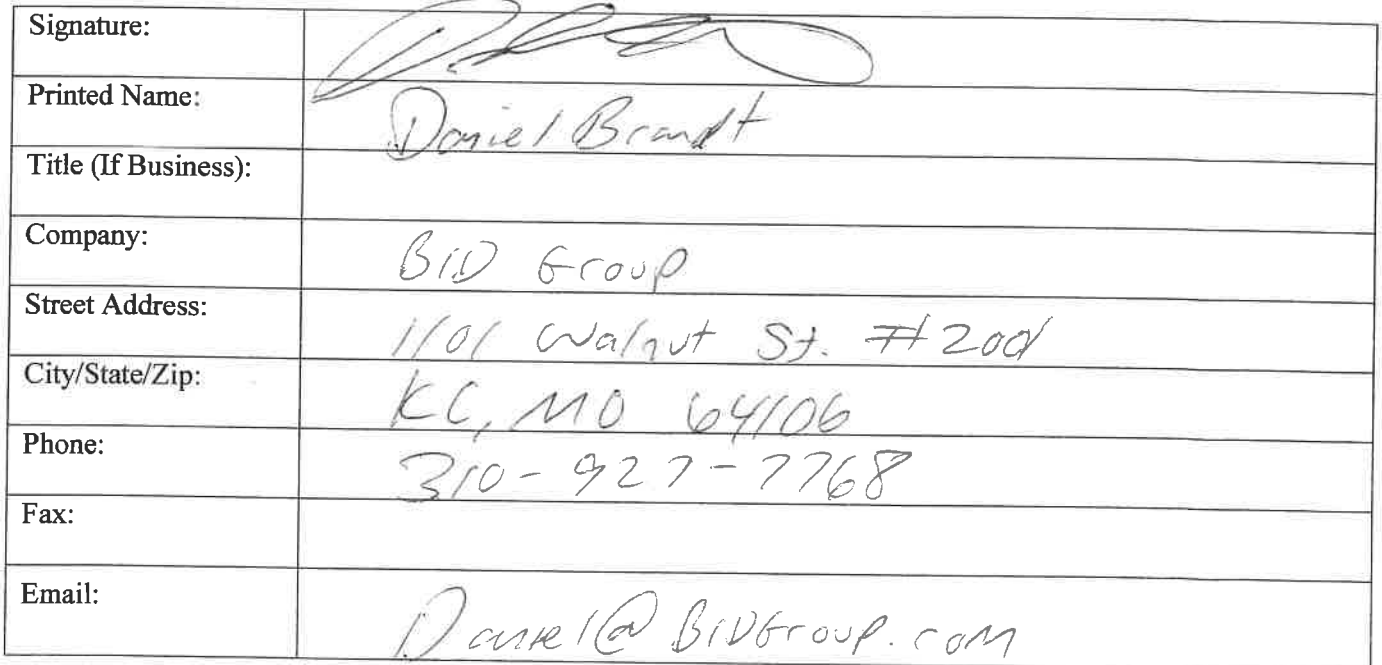 Signature:
Printed Name: Daniel Brandt
Title (If Business):
Company: BiD Group
Street Address: 1101 Walnut St. #200
City/State/Zip: KC, MO 64106
Phone: 310-927-7768
Fax:
Email: Daniel@BiDGroup.com